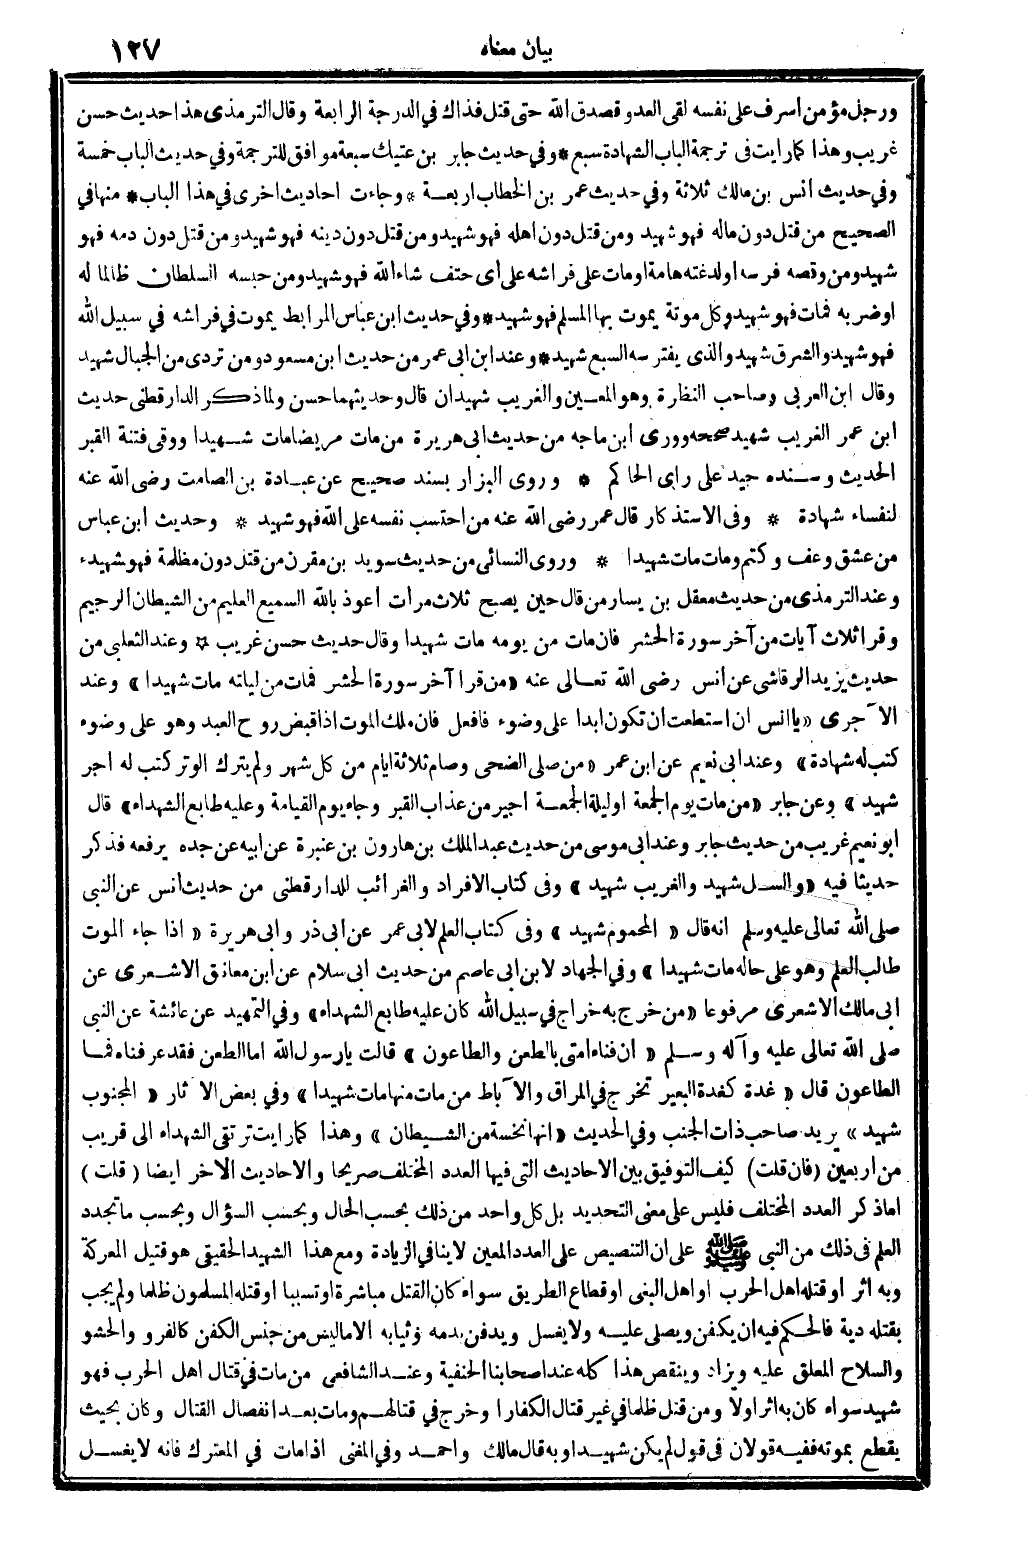 بيان معناه ١٢٧
ورجل مؤمن أسرف على نفسه لقى العدو فصدق الله حتى قتل فذاك في الدرجة الرابعة وقال الترمذى هذا حديث حسن
غريب وهذا كما رايت فى ترجمة الباب الشهادة سبع * وفي حديث جابر بن عتيك سبعة موافق للترجمة وفي حديث الباب خمسة
وفي حديث انس بن مالك ثلاثة وفي حديث عمر بن الخطاب اربعة * وجاءت احاديث اخرى في هذا الباب * منها في
الصحيح من قتل دون ماله فهو شهيد ومن قتل دون اهله فهو شهيد ومن قتل دون دينه فهو شهيد ومن قتل دون دمه فهو
شهيد ومن وقصه فرسه او لدغته هامة او مات على فراشه على أى حتف شاء الله فهو شهيد ومن حبسه السلطان ظالما له
او ضربه فمات فهو شهيد وكل موتة يموت بها المسلم فهو شهيد * وفي حديث ابن عباس المرابط يموت في فراشه في سبيل الله
فهو شهيد والشرق شهيد والذى يفترسه السبع شهيد * وعند ابن ابى عمر من حديث ابن مسعود ومن تردى من الجبال شهيد
وقال ابن العربى وصاحب النظارة وهو المعين والغريب شهيدان قال وحديثهما حسن ولما ذكر الدارقطنى حديث
ابن عمر الغريب شهيد صححه وورى ابن ماجه من حديث ابى هريرة من مات مريضا مات شهيدا ووقى فتنة القبر
الحديث وسنده جيد على راى الحاكم * وروى البزار بسند صحيح عن عبادة بن الصامت رضى الله عنه
لنفساء شهادة * وفى الاستذكار قال عمر رضى الله عنه من احتسب نفسه على الله فهو شهيد * وحديث ابن عباس
من عشق وعف وكتم ومات مات شهيدا * وروى النسائى من حديث سويد بن مقرن من قتل دون مظلمة فهو شهيدء
وعند الترمذى من حديث معقل بن يسار من قال حين يصبح ثلاث مرات أعوذ بالله السميع العليم من الشيطان الرجيم
وقرا ثلاث آيات من آخر سورة الحشر فان مات من يومه مات شهيدا وقال حديث حسن غريب * وعند الثعلبى من
حديث يزيد الرقاشى عن انس رضى الله تعالى عنه «من قرا آخر سورة الحشر فمات من ليلته مات شهيدا» وعند
الآجرى «يا انس ان استطعت ان تكون ابدا على وضوء فافعل فان ملك الموت اذا قبض روح العبد وهو على وضوء
كتب له شهادة» وعند ابى نعيم عن ابن عمر «من صلى الضحى وصام ثلاثة ايام من كل شهر ولم يترك الوتر كتب له اجر
شهيد» وعن جابر «من مات يوم الجمعة او ليلة الجمعة اجير من عذاب القبر وجاء يوم القيامة وعليه طابع الشهداء» قال
ابو نعيم غريب من حديث جابر وعند ابى موسى من حديث عبد الملك بن هارون بن عنبرة عن ابيه عن جده يرفعه فذكر
حديثا فيه «والسل شهيد والغريب شهيد» وفى كتاب الافراد والغرائب للدارقطنى من حديث انس عن النبى
صلى الله تعالى عليه وسلم انه قال «المحموم شهيد» وفى كتاب العلم لابى عمر عن ابى ذر وابى هريرة «اذا جاء الموت
طالب العلم وهو على حاله مات شهيدا» وفي الجهاد لابن ابى عاصم من حديث ابى سلام عن ابن معانق الاشعرى عن
ابى مالك الاشعرى مرفوعا «من خرج به خراج في سبيل الله كان عليه طابع الشهداء» وفي التمهيد عن عائشة عن النبى
صلى الله تعالى عليه وآله وسلم «ان فناء امتى بالطعن والطاعون» قالت يارسول الله اما الطعن فقد عرفناه فما
الطاعون قال «غدة كغدة البعير تخرج في المراق والآباط من مات منها مات شهيدا» وفي بعض الآثار «المجنوب
شهيد» يريد صاحب ذات الجنب وفي الحديث «انها نخسة من الشيطان» وهذا كما رايت ترتقى الشهداء الى قريب
من اربعين (فان قلت) كيف التوفيق بين الاحاديث التى فيها العدد المختلف صريحا والاحاديث الاخر ايضا (قلت)
اما ذكر العدد المختلف فليس على معنى التحديد بل كل واحد من ذلك بحسب الحال وبحسب السؤال وبحسب ما تجدد
العلم فى ذلك من النبى ﷺ على ان التنصيص على العدد المعين لا ينافي الزيادة ومع هذا الشهيد الحقيقى هو قتيل المعركة
وبه اثر او قتله اهل الحرب او اهل البغى او قطاع الطريق سواء كان القتل مباشرة او تسببا او قتله المسلمون ظلما ولم يجب
بقتله دية فالحكم فيه ان يكفن ويصلى عليه ولا يغسل ويدفن بدمه وثيابه الا ما ليس من جنس الكفن كالفرو والحشو
والسلاح المعلق عليه ويزاد وينقص هذا كله عند اصحابنا الحنفية وعند الشافعى من مات في قتال اهل الحرب فهو
شهيد سواء كان به اثر اولا ومن قتل ظلما في غير قتال الكفار او خرج في قتالهم ومات بعد انفصال القتال وكان بحيث
يقطع بموته ففيه قولان فى قول لم يكن شهيدا وبه قال مالك واحمد وفي المغنى اذا مات في المعترك فانه لا يغسل